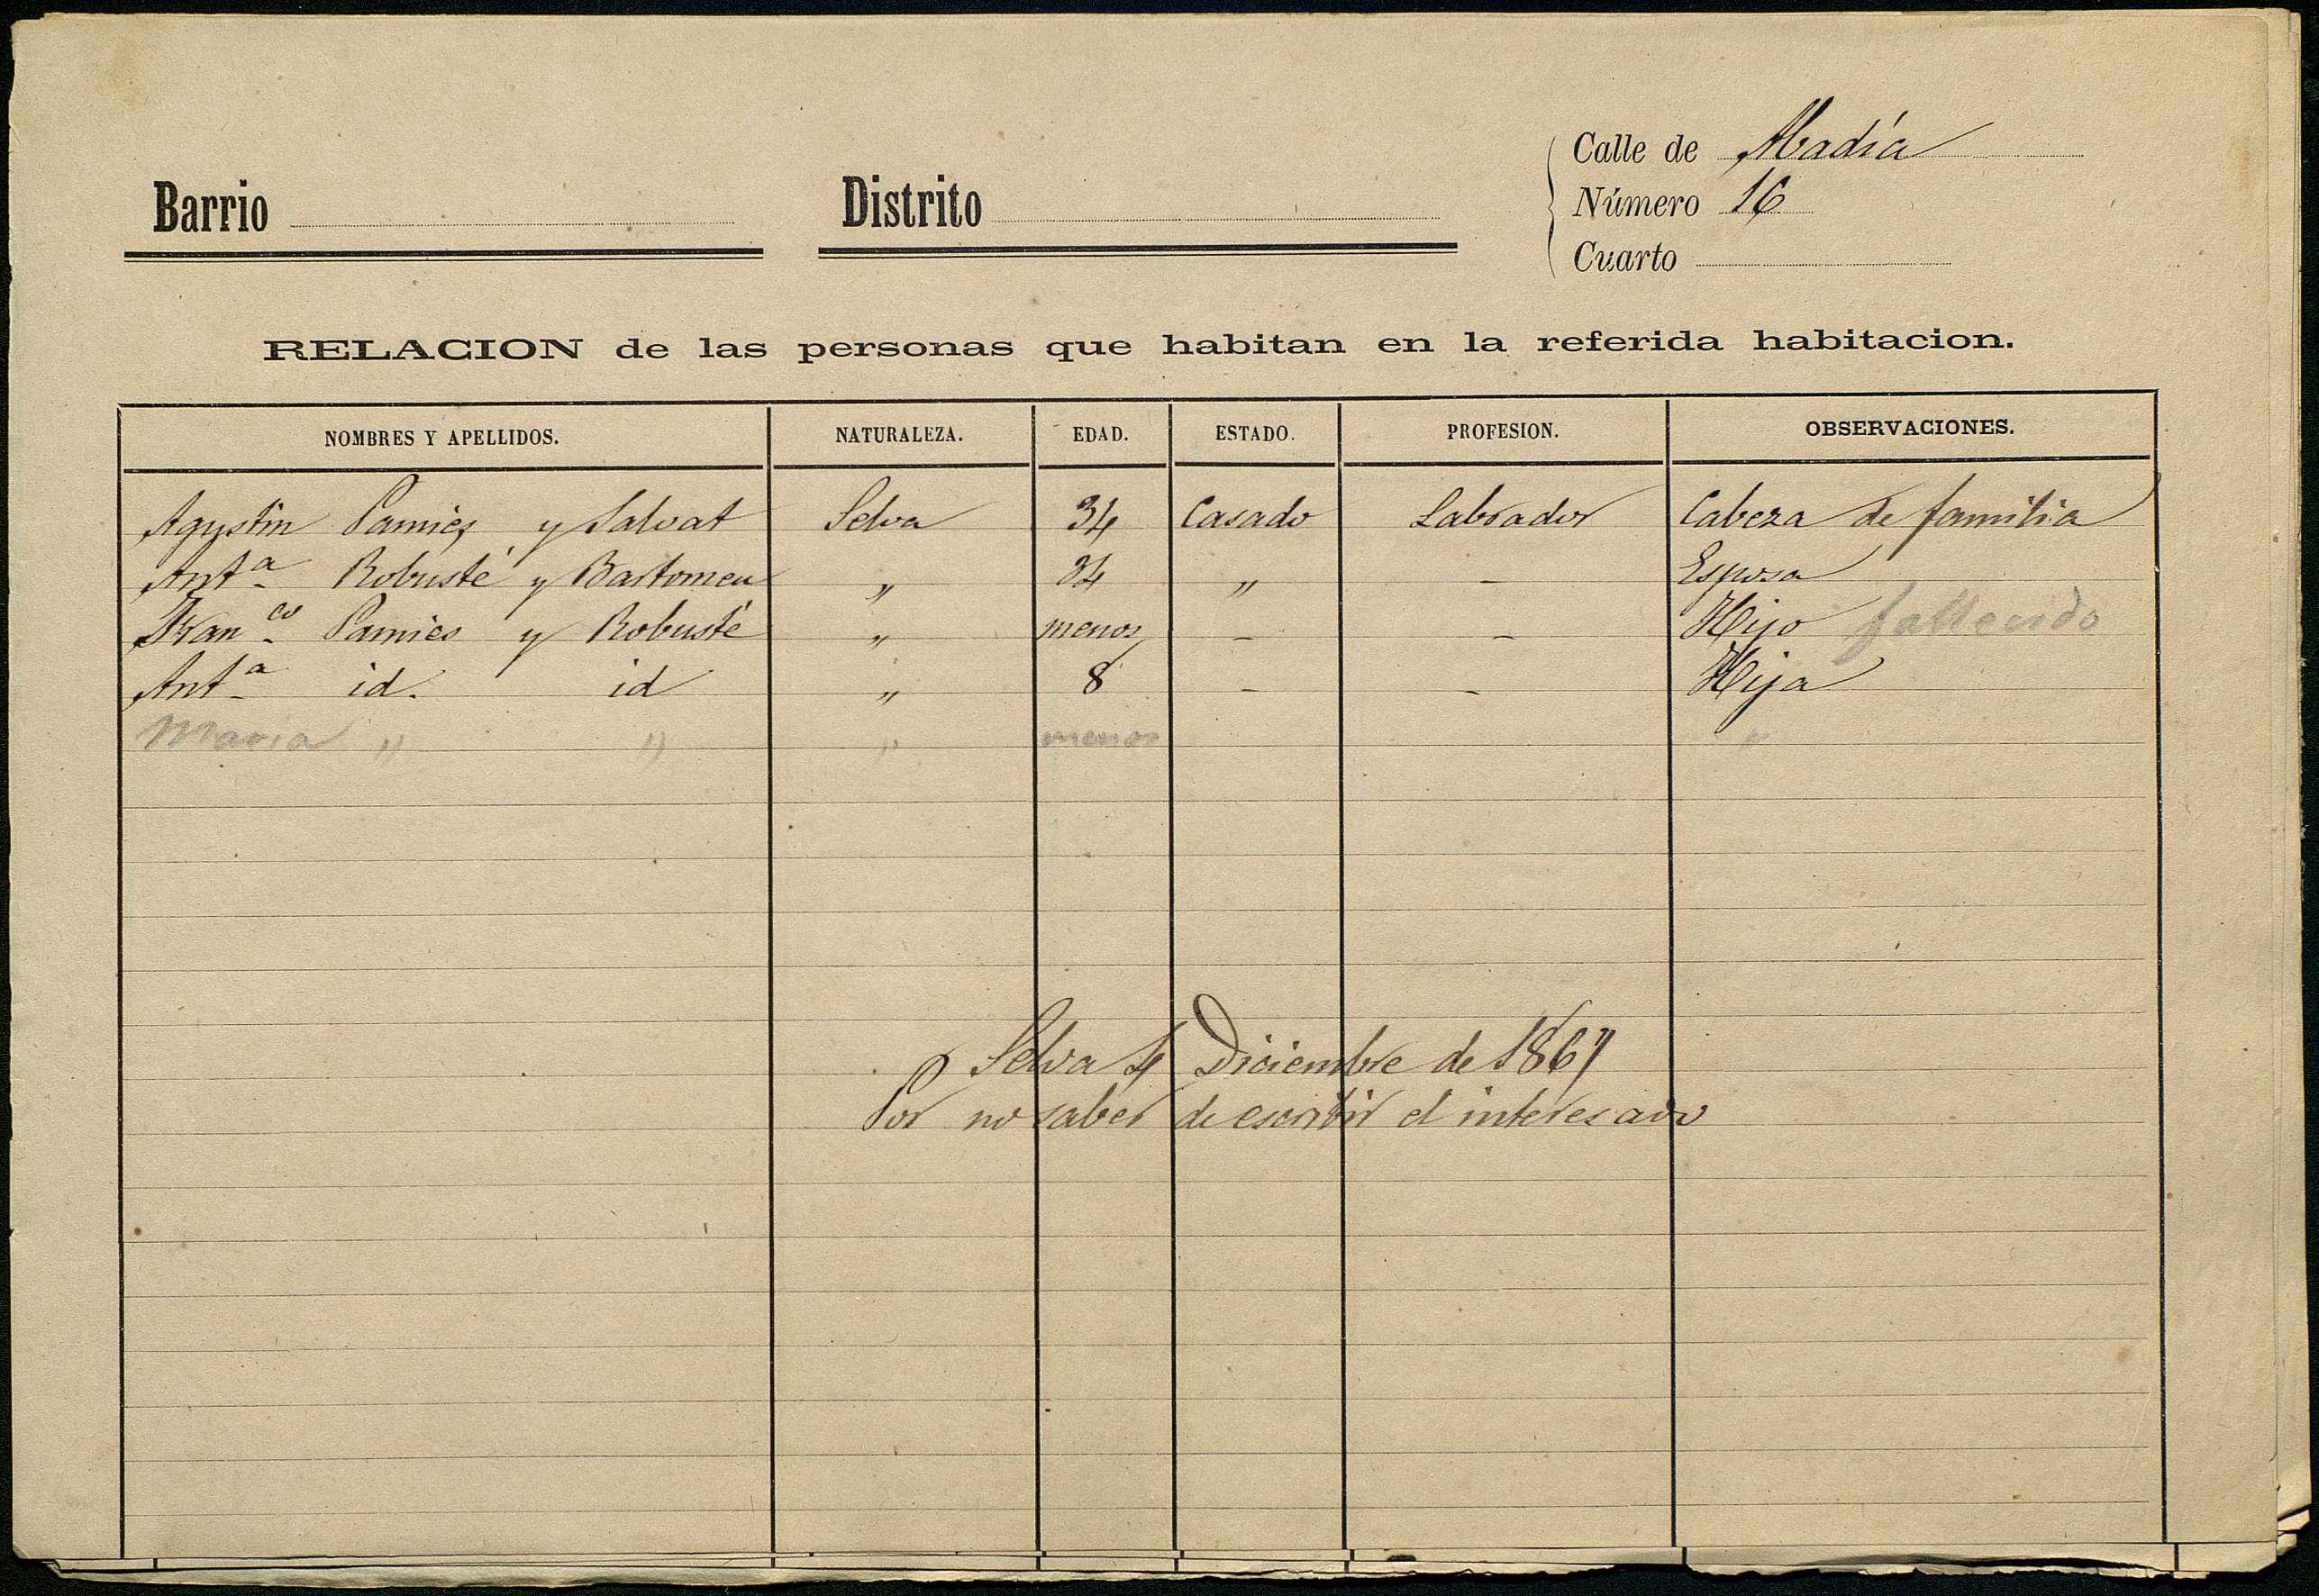 Calle de Abadía
Barrio
Distrito
Número 16
Cuarto
RELACION de las personas que habitan en la referida habitacion.
NOMBRES Y APELLIDOS. NATURALEZA. EDAD. ESTADO. PROFESION. OBSERVACIONES.
Agustin Pamies y Salvat Selva 34 Casado Labrador Cabeza de familia
Antª Robusté y Bartomeu „ 34 „ – Esposa
Franco Pamies y Robusté „ menos – – Hijo fallecido
Antª id. id „ 8 – – Hija
Maria „ „ „ menos „
Selva 4 Diciembre de 1867
Por no saber de escribir el interesado